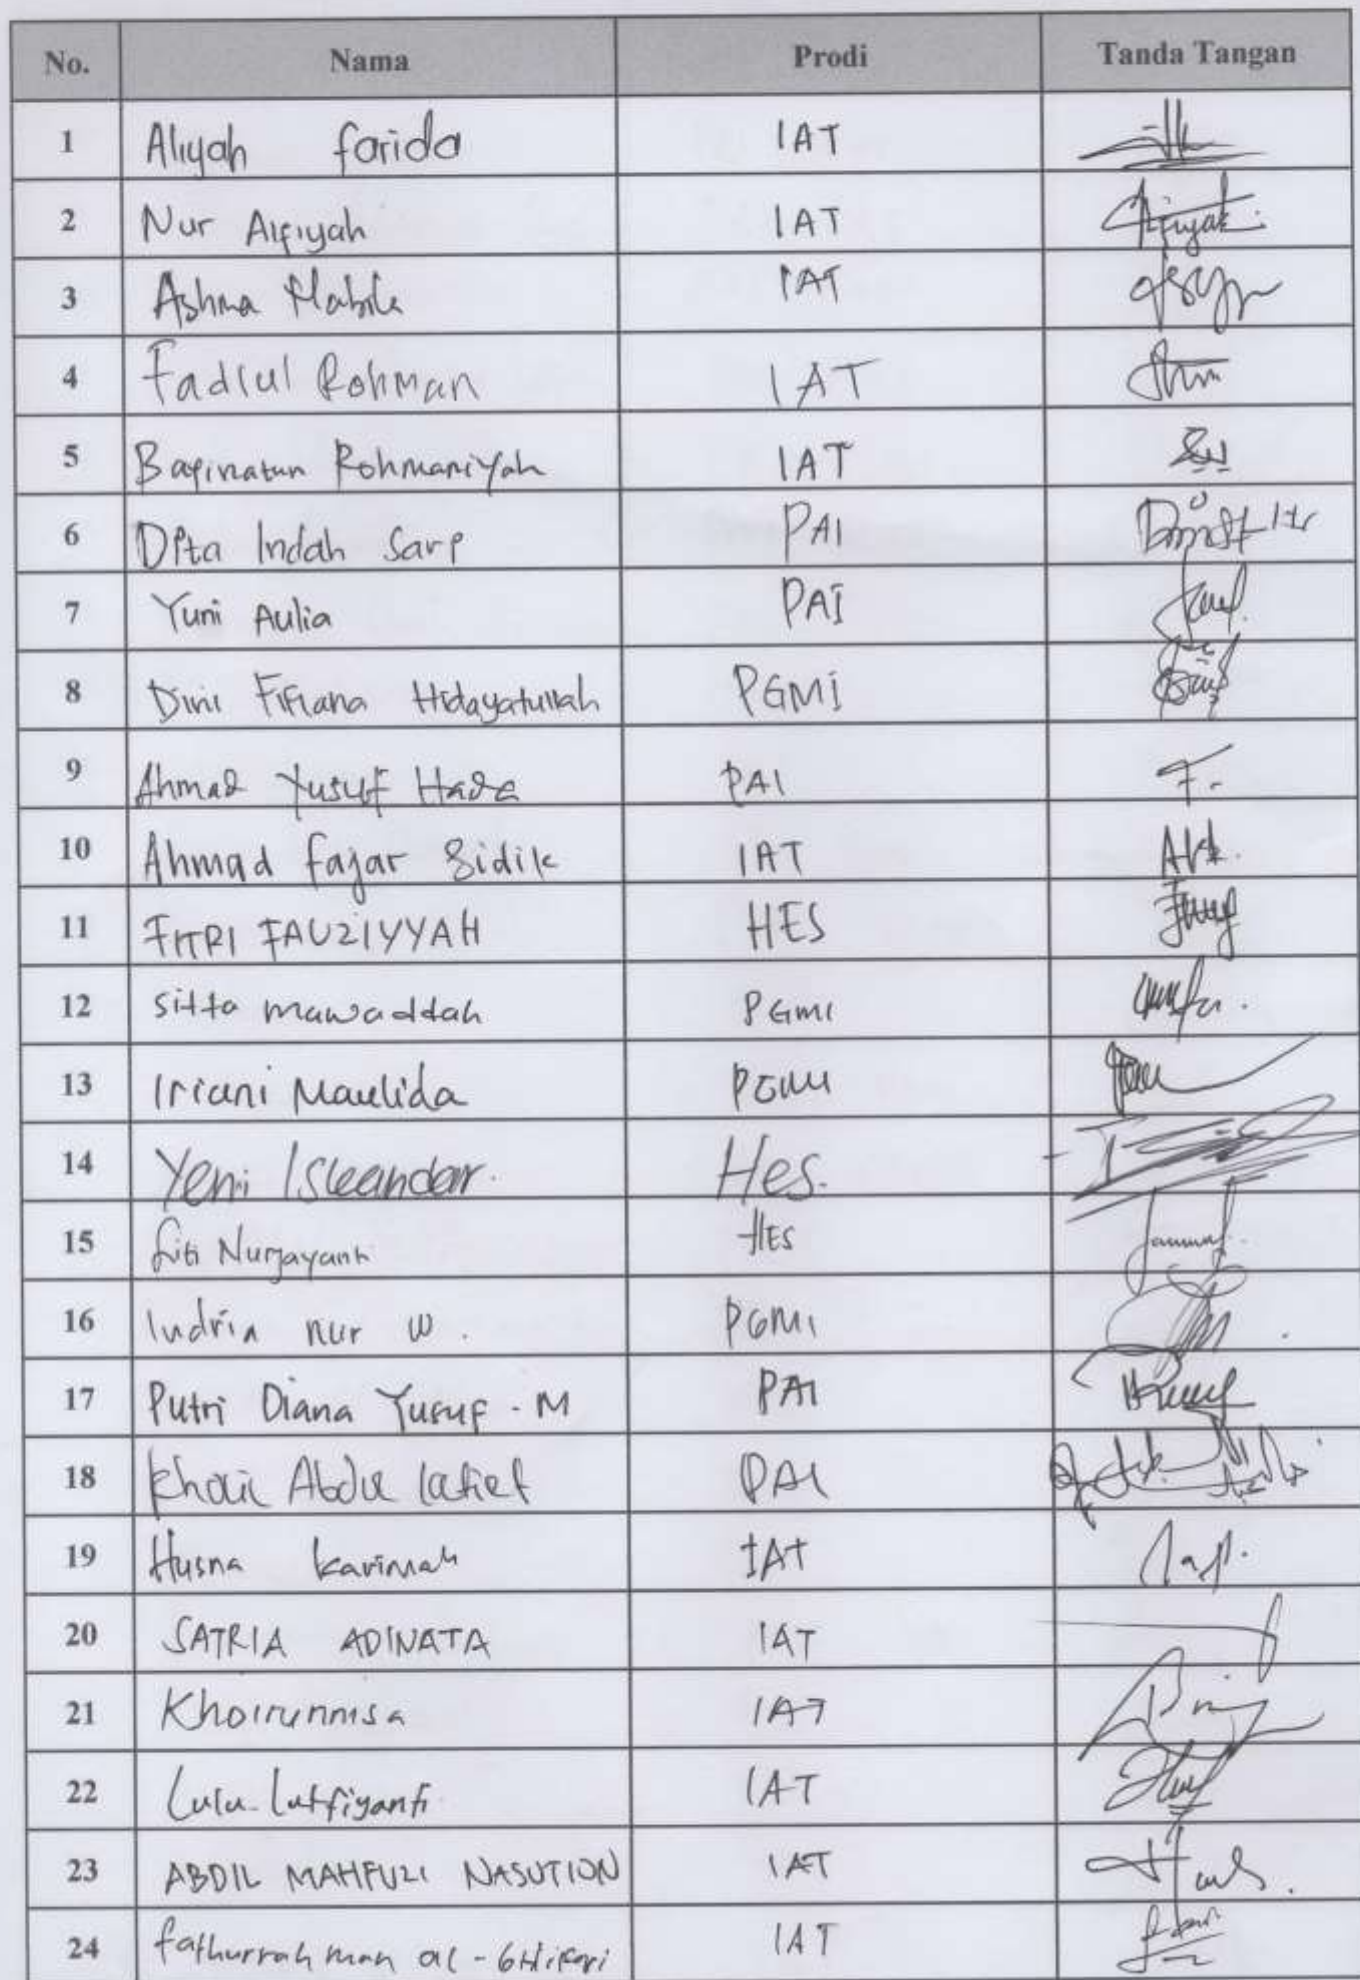 No. Nama Prodi Tanda Tangan
1 Aliyah farida IAT
2 Nur Alfiyah IAT
3 Ashma Nabila IAT
4 Fadlul Rohman IAT
5 Rohmaniyah IAT
6 Dita Indah Sari PAI
7 Yuni Aulia PAI
8 Dini Fifiana Hidayatullah PGMI
9 Ahmad Yusuf PAI
10 Ahmad fajar Sidik IAT
11 FITRI FAUZIYYAH HES
12 sitta mawaddah PGMI
13 Iriani Maulida PGMI
14 Yeni Iskandar. Hes.
15 Siti Nurjayanti HES
16 Indria nur W. PGMI
17 Putri Diana Yusuf. M PAI
18 Abdul latief PAI
19 Husna karimah IAT
20 SATRIA ADINATA IAT
21 Khoirunnisa IAT
22 Lulu Lutfiyanti IAT
23 ABDIL MAHFUZI NASUTION IAT
24 fathurrahman al-GHifari IAT